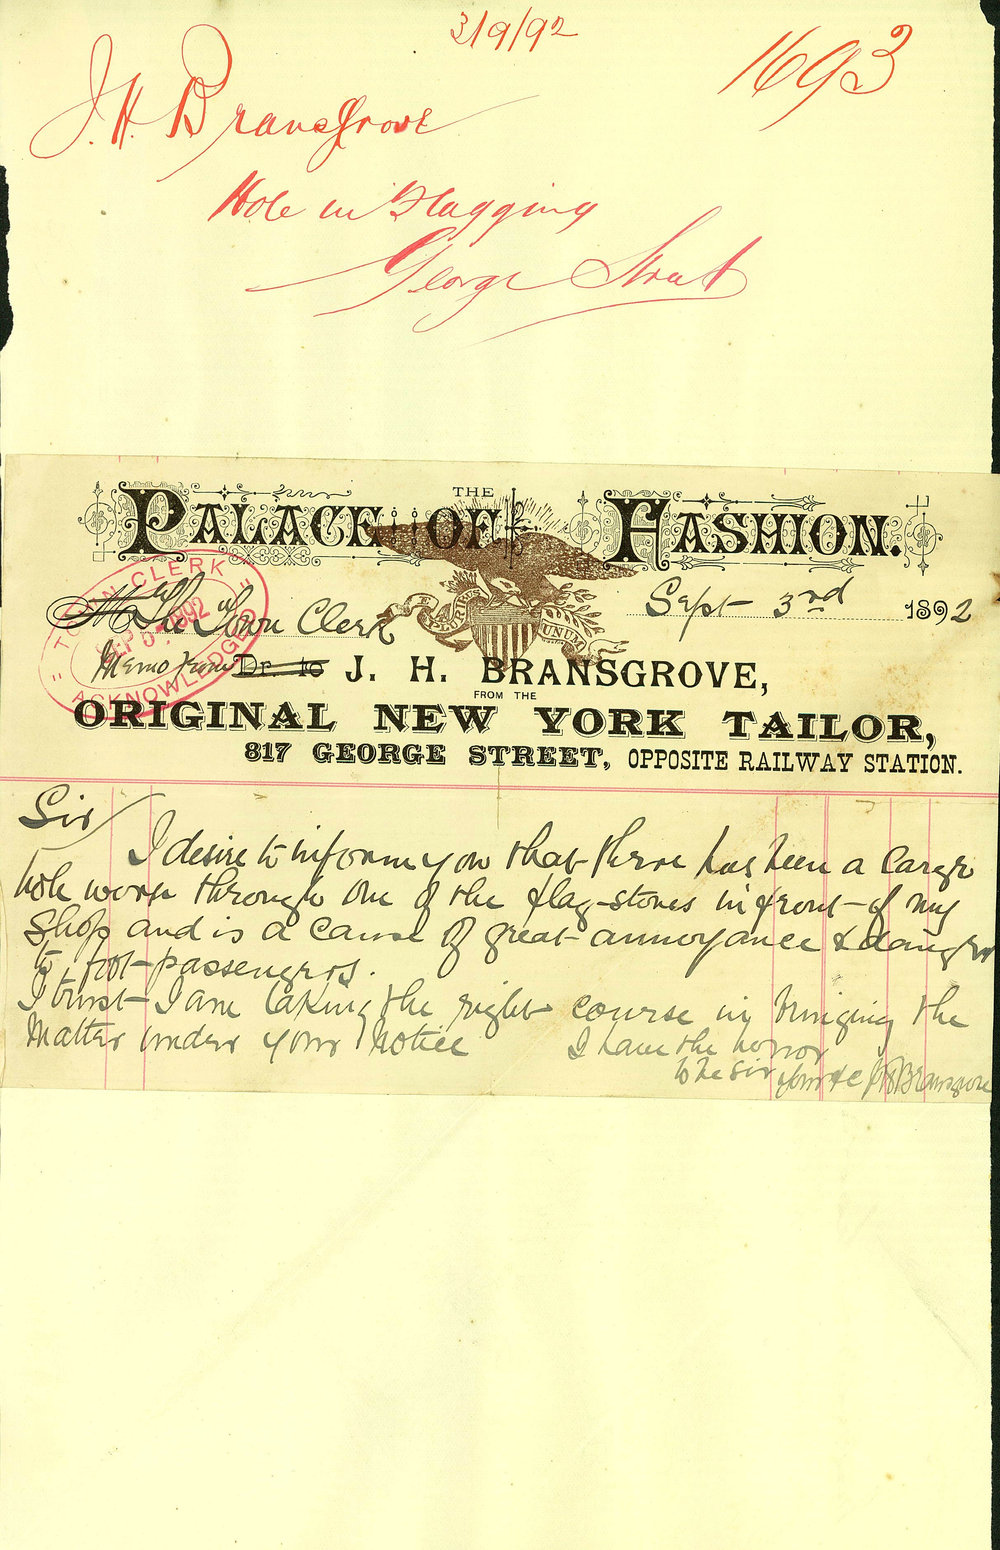 3/9/92
1693
J. H. Bransgrove
Hole in Flagging
George Street
THE
PALACE OF FASHION.
E PLURIBUS UNUM
TOWN CLERK
SEP 5 1892
ACKNOWLEDGED
The Town Clerk
Sept 3rd 1892
Memo from Dr. to J. H. BRANSGROVE,
FROM THE
ORIGINAL NEW YORK TAILOR,
817 GEORGE STREET, OPPOSITE RAILWAY STATION.
Sir/
I desire to inform you that there has been a large
hole worn through one of the flag-stones in front of my
Shop and is a cause of great annoyance & danger
to foot-passengers.
I trust I am taking the right course in bringing the
Matter under your Notice
I have the honor
to be Sir yours &c J H Bransgrove